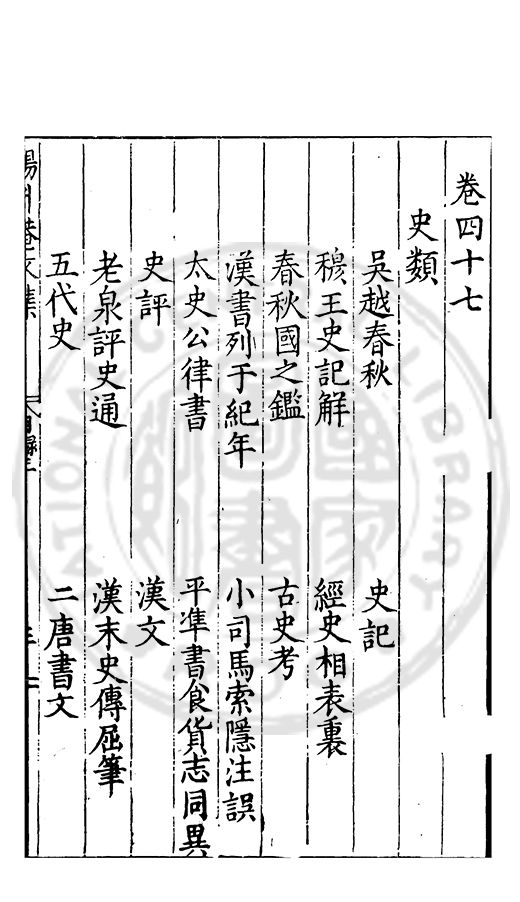 卷四十七
史類
吳越春秋 史記
穆王史記解 經史相表裏
春秋國之鑑 古史考
漢書列于紀年 小司馬索隱注誤
太史公律書 平準書食貨志同異
史評 漢文
老泉評史通 漢末史傳屈筆
五代史 二唐書文